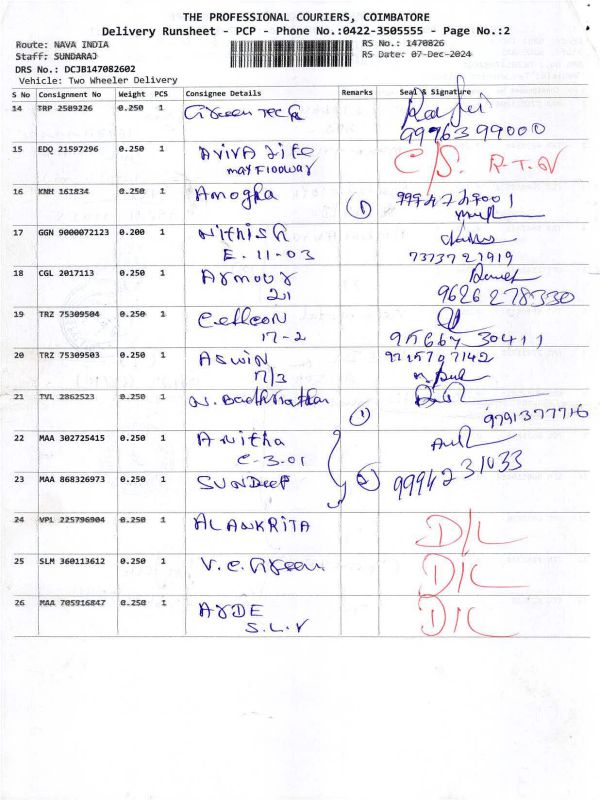 THE PROFESSIONAL COURIERS, COIMBATORE
Delivery Runsheet - PCP - Phone No.:0422-3505555 - Page No.:2
Route: NAVA INDIA
RS No.: 1470826
Staff: SUNDARAJ
RS Date: 07-Dec-2024
DRS No.: DCJB147082602
Vehicle: Two Wheeler Delivery
S No Consignment No Weight PCS Consignee Details Remarks Seal & Signature
14 TRP 2589226 0.250 1 Green Tech
9996399000
15 EDQ 21597296 0.250 1 AVIVA Life C/S. R.T.O
16 KNH 161834 0.250 1 Amogha 1
17 GGN 9000072123 0.200 1 Nithish
E. 11-03 7373721919
18 CGL 2017113 0.250 1 Armour
21 9626278330
19 TRZ 75309504 0.250 1
17-2 95667 30411
20 TRZ 75309503 0.250 1 ASWIN
17/3
21 TVL 2862523 0.250 1 1
9791377716
22 MAA 302725415 0.250 1 Anitha
C-3.01
23 MAA 868326973 0.250 1 SUNDeep 2 9994231033
24 VPL 225796904 0.250 1 ALANKRITA D/L
25 SLM 360113612 0.250 1 V.C. Green D/L
26 MAA 705916847 0.250 1 D/L
S.L.V